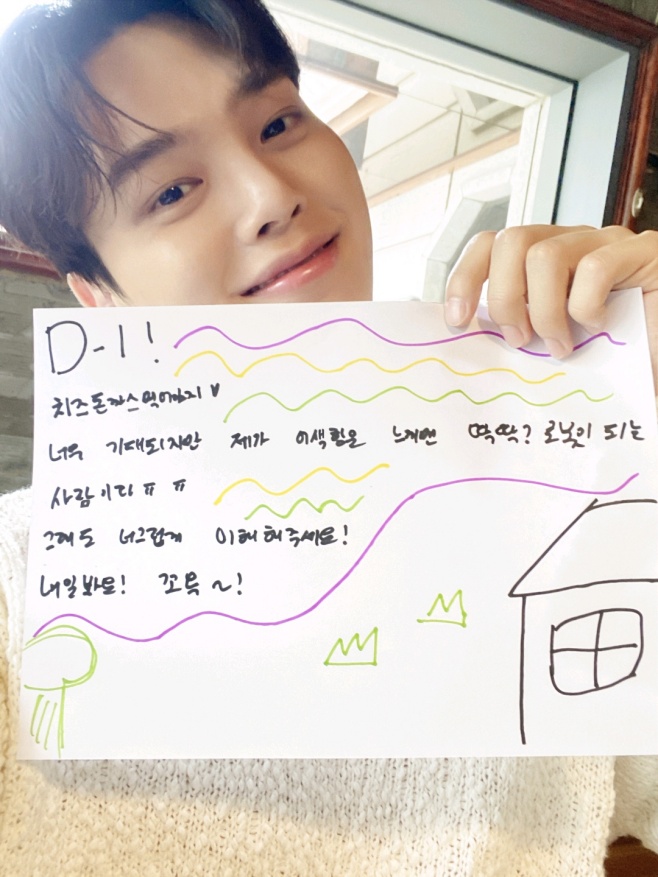 D-1!
치즈돈까스 먹어야지 ♥
너무 기대되지만 제가 어색함을 느끼면 딱딱? 로봇이 되는
사람이다 ㅠ ㅠ
그래도 너그럽게 이해해주세요!
내일봐요! 꼬옥 ~!